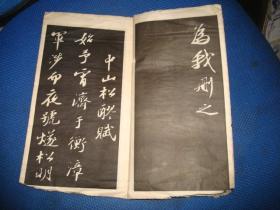 為我刪之
中山松醪賦
始予宵濟于衡漳
軍涉而夜號燧松明